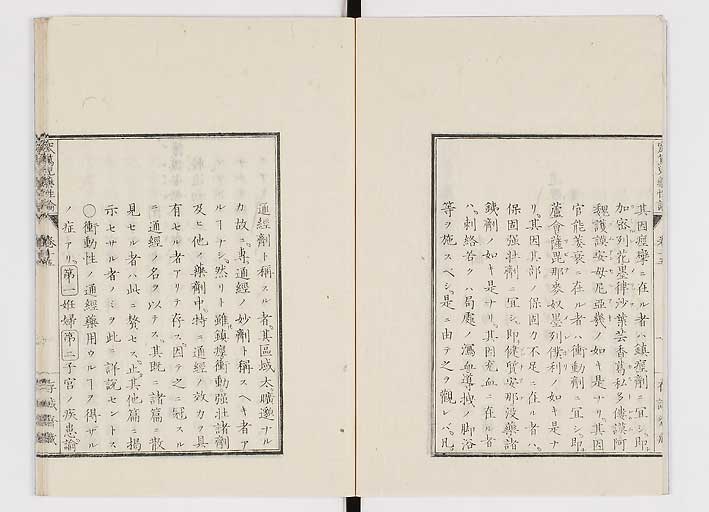 其因痙攣ニ在ル者ハ鎮痙劑ニ宜シ即
加密列花墨律沙葉芸香葛私多僂謨阿
魏護謨安母尼亞幾ノ如キ是ナリ其因
官能萎衰ニ在ル者ハ衝動劑ニ宜シ即
蘆會薩毘那麥奴墨列僕利ノ如キ是ナ
リ其因其部ノ保固力不足ニ在ル者ハ
保固强壯劑ニ宜シ即健質安那没藥諸
鐵劑ノ如キ是ナリ其因充血ニ在ル者
ハ刺絡若クハ局處ノ瀉血導拔ノ脚浴
等ヲ施スベシ是ニ由テ之ヲ觀レバ凡
通經劑ト稱スル者其區域太曠邈ナル
カ故ニ專通經ノ妙劑ト稱スヘキ者ア
ルヿナシ然リト雖鎮痙衝動强壯諸劑
及ヒ他ノ藥劑中特ニ通經ノ效力ヲ具
有セル者アリテ存ス因テ之ニ冠スル
ニ通經ノ名ヲ以テス其既ニ諸篇ニ散
見セル者ハ此ニ贅セス止其他篇ニ揭
示セサル者ノミヲ此ニ詳説セントス
○衝動性ノ通經藥用ウルヿヲ得ザル
ノ症アリ第一妊婦第二子宮ノ疾患論
藥性論